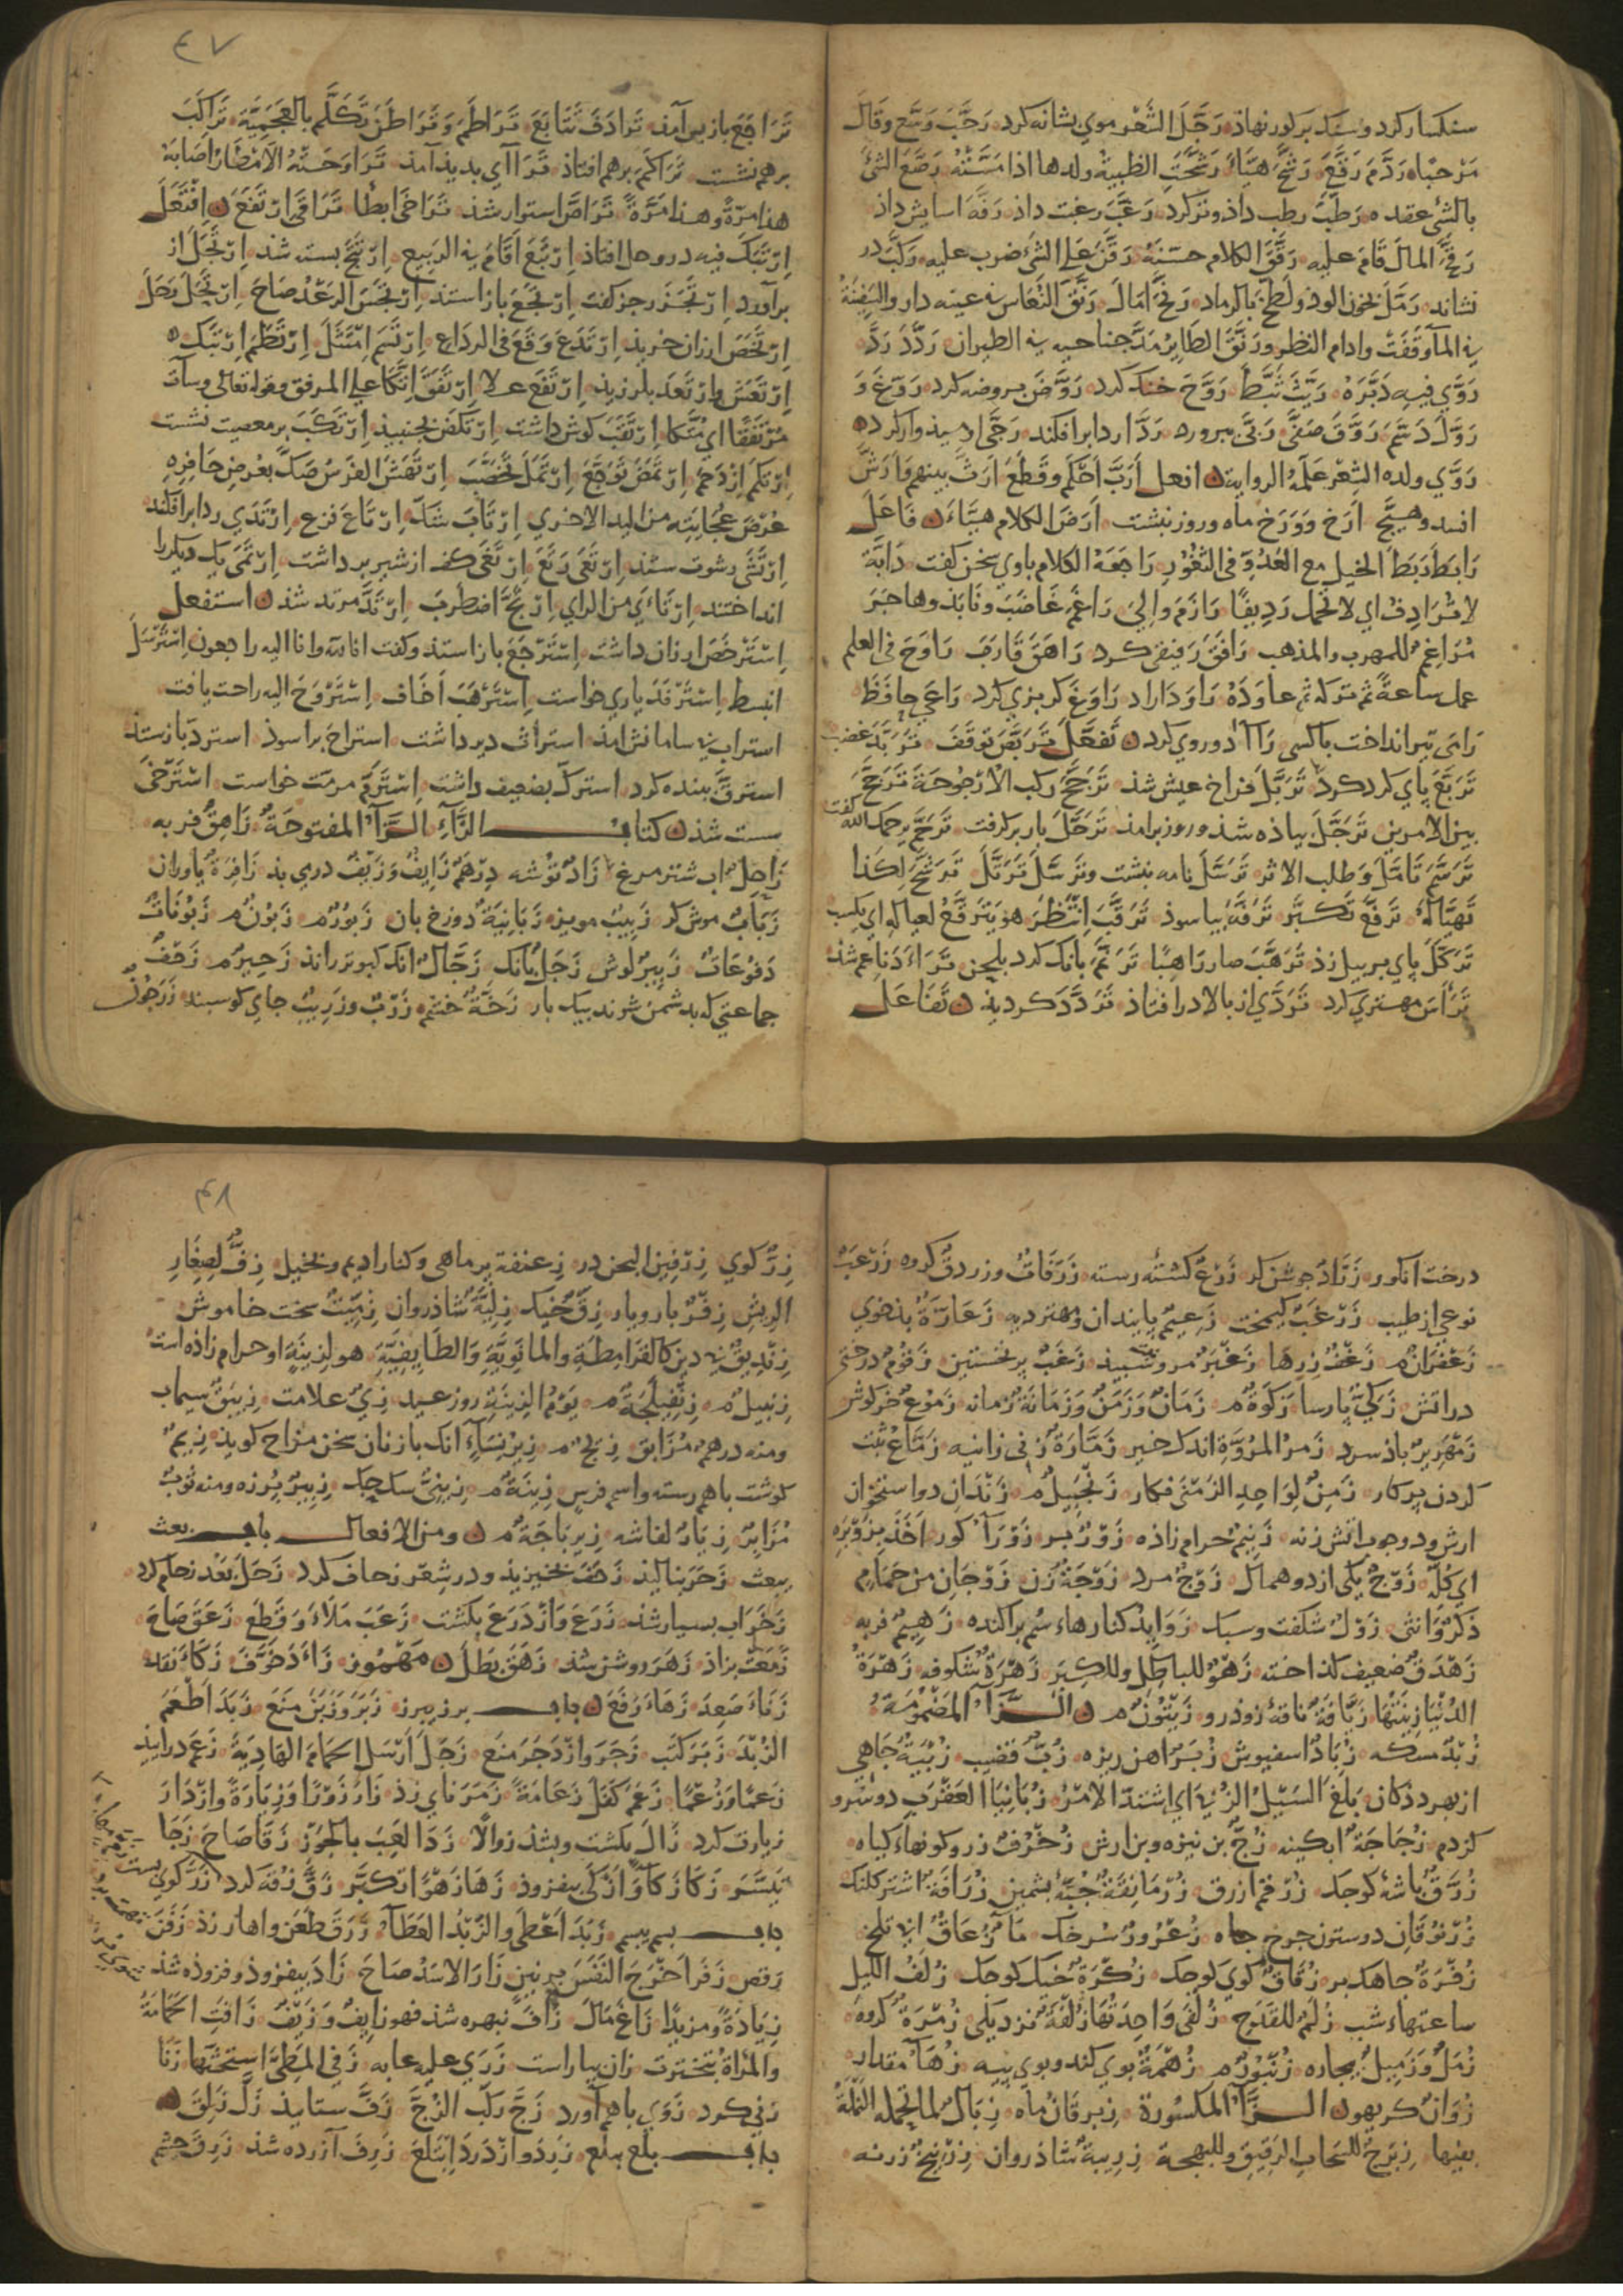 سنکسار کرد وسنک بر کور نهاذ رَجَّلَ الشَّعْرَ موی بشانه کرد رَحَّبَ وَسَّعَ وقَالَ
مَرْحَبًا رَدَّمَ رَقَّعَ رَشَّحَ هَیَّأَ رَشَّحَتِ الظبیةُ ولدها اذا مَسَّتْهُ رَصَّعَ الشئ
بالشئ عقده رَطَّبَ رطب داذ وتر کرد رَغَّبَ رغبت داذ رَفَّهَ اسایش داذ
رَقَّحَ المالَ قَامَ علیه رَقَّقَ الکلام حسَّنَهُ رَقَّنَ علی الشئ ضرب علیه رَکَّبَ در
نشاند رَمَّلَ لطخ بالرماد رَنَّحَ امَالَ رَنَّقَ النُّعَاسُ فی عینه دار والسفینةُ
فی المآ وَقَفَتْ وادام النظر ورَنَّقَ الطَّایِرُ مَدَّ جناحیه فی الطیران رَدَّدَ رَدَّ
رَوَّی فیه دَبَّرَهُ رَیَّثَ ثَبَّطَ رَوَّحَ خنک کرد رَوَّضَ بروضه کرد رَوَّغَ وَ
رَوَّلَ دَسَّمَ رَوَّقَ صَفَّی رَبَّی بپرورد رَدَّا ردا برافکند رَجَّی امیذوار کرد
رَوَّی ولده الشِّعْرَ عَلَّمَهُ الروایة افعل أَرَّبَ أَحْکَمَ وقَطَعَ أَرَّثَ بینهم وَأَرَّشَ
افسد وهَیَّجَ أَرَّخَ وَوَرَّخَ ماه وروز نبشت أَرَّضَ الکلامَ هیَّاءَ فَاعَلَ
رَابَطَ رَبَطَ الخیل مع العَدُوِّ فی الثُّغُورِ رَاجَعَهُ الکلام باوی سخن کفت دَابَّة
لا تُرَادِفُ ای لا تحمل رَدِیفًا رَازَمَ وَالَی رَاغَمَ غَاضَبَ ونَابَذَ وهَاجَرَ
مُرَاغِمٌ للمهرب والمذهب رَافَقَ رَفیقی کرد رَاهَقَ قَارَبَ رَاوَحَ فی العلم
عمل ساعةً ثم ترکه ثم عَاوَدَهُ رَاوَدَ اراد رَاوَغَ کربزی کرد رَاعَی حافَظَ
رَامَی تیر انداخت باکسی رَاآ دوروی کرد تَفَعَّلَ تَرَبَّصَ تَوَقَّفَ تَرَبَّدَ غضب
تَرَبَّعَ پای کرد کرد تَرَبَّلَ فراخ عیش شذ تَرَجَّحَ رکب الأُرْجُوحَةَ تَرَجَّحَ
بین الامرین تَرَجَّلَ بیاذه شذ وروز برامذ تَرَحَّلَ بار برکرفت تَرَحَّمَ رحمک الله کفت
تَرَسَّمَ تَامَّلَ وَطلب الاثر تَرَسَّلَ نامه نبشت وتَرَسَّلَ تَرَتَّلَ تَرَشَّحَ لِکَذا
تَهَیَّاله تَرَفَّعَ تکبَّر تَرَفَّهَ بیاسوذ تَرَقَّبَ اِنْتَظَرَ هو یَتَرَقَّحُ لعیاله ای یکسب
تَرَکَّلَ پای بربیل زذ تَرَهَّبَ صار رَاهِبًا تَرَنَّمَ بانک کرد بلحن تَرَاءَ دَنَا عم شذ
تَرَأَّسَ مهتری کرد تَرَدَّی از بالا در افتاذ تَرَدَّدَ کردید تَفَاعَلَ
٤٧
تَرَاجَعَ بازپس آمذ تَرَادَفَ تَتَابَعَ تَرَاطَنَ تَکَلَّم بالعَجَمِیَّة تَرَاکَبَ
برهم نشست تَرَاکَمَ برهم افتاذ تَرَاآی بدیذ آمذ تَرَاوَحَتْهُ الأَمْطَارُ أَصَابَهُ
هذا مرّةً وهذا مَرَّةً تَرَاصَّ استوار شذ تَرَاخَی ابطا تَرَاقَی ارتفَعَ اِفْتَعَلَ
اِرْتَبَکَ فیه در وحل افتاذ اِرْتَبَعَ اَقَامَ فی الرَّبِیع اِرْتَتَجَ بسته شذ اِرْتَجَلَ از
برآورد اِرْتَجَزَ رجز کفت اِرْتَجَعَ بازاستذ اِرْتَجَسَ الرَّعْدُ صَاحَ اِرْتَحَلَ رَحَلَ
اِرْتَخَصَ ارزان خرید اِرْتَدَعَ وَقَعَ فی الرداع اِرْتَسَمَ اِمْتَثَلَ اِرْتَطَمَ اِرْتَبَکَ
اِرْتَعَشَ وارْتَعَدَ بلرزید اِرْتَفَعَ علا اِرْتَفَقَ اِتَّکَاَ علی المرفق وقوله تعالی وسآت
مُرْتَفَقًا ای مُتَّکَا اِرْتَقَبَ کوش داشت اِرْتَکَضَ بجنبیذ اِرْتَکَبَ بر معصیت نشست
اِرْتَکَمَ اِزْدَحَمَ اِرْتَمَضَ تَوَجَّعَ اِرْتَمَلَ تَخَضَّبَ اِرْتَهَشَ الفَرَسُ صَکَّ بعُرْضِ حَافِرِهِ
عُرْضَ عُجَایَتِهِ من الید الاخری اِرْتَابَ شَکَّ اِرْتَاعَ فزع اِرْتَدَی ردا برافکند
اِرْتَشَی رشوت ستذ اِرْتَعَی رَتَعَ اِرْتَغَی کف از شیر برداشت اِرْتَمَی یک دیکر را
انداختند اِرْتَاءَی من الرای اِرْتَجَّ اضطَرَبَ اِرْتَدَّ مرتد شذ استفعل
اِسْتَرْخَصَ ارزان داشت اِسْتَرْجَعَ بازاستذ وکفت انا لله وانا الیه راجعون اِسْتَرْسَلَ
انبسط اِسْتَرْفَدَ یاری خواست اِسْتَرْهَبَ اَخَافَ اِسْتَرْوَحَ الیه راحت یافت
استراب استراث دیر داشت استراح براسوذ استردّ بازستذ
استرقَّ ببنده کرد استرکَّ بضعیف داشت اِسْتَرَمَّ مرمَّت خواست اسْتَرْخَی
سست شذ کتاب الزَّاءِ الزَّآ المفتوحَةُ زَاهِقٌ فربه
زَاجِلٌ اب شترمرغ زَادٌ تُوشه دِرْهَمٌ زَایِفٌ وَزَیْفٌ زَافِرَةٌ یاوران
زَبَابٌ موش کر زَبِیبٌ مویز زَبَانِیَةٌ دوزخ بان زَبُورٌ م زَبُونٌ م زَبُونَاتٌ
دَفوُعَاتٌ زَبِیرٌ لوش زَجَلٌ بانک زَجَّالٌ انک کبوتر راند زَحِیرٌ م زَحْفٌ
جماعتی که بدشمن شوند بیک بار زَخَّةٌ خشم زَرْبٌ وزَرِیبٌ جای کوسبند زَرَجُونٌ
درخت انکور زَرَّادٌ جوشن کر زَرْعٌ کشته رسته زَرَافَاتٌ کروه زَرْنَبٌ
نوعی از طیب زَرْغَبٌ کیمخت زَعِیمٌ پایندان ومهتر دیه زَعَارَّةٌ بذخوی
زَعْفَرَانٌ م زَغْفٌ زرها زَغْبَرٌ مرو سبید زَغَبٌ پر نخستین زَقّومٌ درختی
در اتش زَکِیٌّ پارسا زَکَوةٌ م زَمَانٌ وَزَمَنٌ وَزَمَانَةٌ زمانه زَمُوعٌ خرکوش
زَمْهَرِیرٌ باذ سرد زَمِرُ المُرُوَّةِ اندک خیر زَمَّارَةٌ زنی زانیه زَمَاعٌ ثبت
کردن بر کار زَمِنٌ لِوَاحِدِ الزَّمْنَی فکار زَنْجَبِیلٌ م زَنْدَانِ دو استخوان
ارش ودو چوب اتش زنه زَنِیمٌ حرام زاده زَوْرٌ بر زَوْرَآءُ کور اَخَذَ بِزَوْبَرِهِ
ای کُلِّه زَوْجٌ یکی از دو همال زَوْجٌ مرد زَوْجَةٌ زن زَوْجَانِ من حَمَامٍ
ذَکَرٌ وَانثی زَوْلٌ شکفت وسبک زَوَایِدُ کنارهاء سُم براکنده زَهِیمٌ فربه
زَهْدَقٌ ضعیف کداخته زَهْوٌ للباطِلِ وللکِبَر زَهْرَةٌ شکوفه زَهْرَةُ
الدُّنْیَا زِینَتُهَا زَیَّافَةٌ ناقهٔ زوذرو زَیْتُوْنٌ م الزَّاءُ المضْمُوْمَةُ
زُبْدٌ مسکه زُبَادٌ اسفیوش زُبَرٌ اهن ریزه زُبٌّ قضیب زُبْیَةٌ جاهی
از بهر ددکان بَلَغَ السَّیْلُ الزُّبَی ای اشتدّ الامْرُ زُبَانَیَا العَقْرَبِ دو سرو
کزدم زُجَاجَةٌ ابکینه زُجٌّ بن نیزه وبن ارش زُخْرُفٌ زر وکونهاء کیاه
زُرَّقٌ باشهٔ کوچک زُرْقُمٌ ازرق زُرْمَانِقَةٌ جُبَّهٔ پشمین زُرَافَةٌ اشتر کلنک
زُرْنُوْقَانِ دو ستون جرخ جاه زُعْرُورٌ سُرخک مَاءٌ زُعَاقٌ ابی تلخ
زُفْرَةٌ زُقَاقٌ کوی کوجک زُکْرَةٌ خیک کوجک زُلَفُ اللیل
ساعتهاء شب زُلَمٌ للقَدَح زُلْفَی وَاحِدَتُهَا زُلْفَةٌ نزدیکی زُمْرَةٌ کروه
زُمَّلٌ وَزُمَیْلٌ بیجاره زُنْبُوْرٌ م زُهْمَةٌ بوی کند وبوی پیه زُهَآءٌ مقدار
زُوَانٌ کربهون الزَّاءُ المکسُورَة زِبْرِقَانٌ ماه زِبَالٌ لما تحمله النَّمْلَةُ
بفیها زِبْرِجٌ للسَّحابِ الرَّقِیقِ وللبهجة زِرْبِیَةٌ شاذروان زِرْنِیخٌ زرنه
٤٨
زِرٌّ کوی زِرْفِینٌ زِعْنِفَةٌ پر ماهی وکنار ادیم وبخیل زِفٌّ لِصِغَارِ
الریش زِفْرٌ بار وبار زِقٌّ خیک زِلِّیَّةٌ شاذروان زِمِّیْتٌ سخت خاموش
زِنْدِیقٌ بی دین کالقَرَامِطَةِ والمَانَوِیَّةِ وَالطَّایِفِیَّةِ هو لِزِنْیَةٍ او حرام زاذه است
زِنْبِیلٌ م زِنْفِیلَجَةٌ م یَوْمُ الزِّینَةِ روز عید زِیٌّ علامت زِیبَقٌ سیماب
ومنه درهمٌ مُزَابَقٌ زِیجٌ م زِیرُ نِسَآءٍ انک بازنان سخن مزاح کوید زِیَمٌ
کوشت باهم رسته واسم فرس زِینَةٌ م زِینِیٌّ سک جک زِیبِرٌ پُرزه ومنه ثوبٌ
مُزَابَرٌ زِیَارٌ لفاشه زِیرِبَاجَةٌ م ومن الافعال باب بعث
یبعث زَحَرَ بنالیذ زَحَفَ بخیزیذ ودر شِعْر زحاف کرد زَحَلَ بَعُدَ زحام کرد
زَخَرَ اب بسیار شذ زَرَعَ وازْدَرَعَ بکشت زَعَبَ مَلَأَ وَقَطَعَ زَعَقَ صَاحَ
زَمَعَتْ بزاذ زَهَرَ روشن شذ زَهَقَ بَطَلَ مَهْمُوز زَاءَدَ خَوَّفَ زَکَاءَ نقد
زَنَاءَ صَعِدَ زَهَاءَ رَفَعَ باب برز یبرز زَبَرَ وَزَبَنَ مَنَعَ زَبَدَ اَطْعَمَ
الزُّبْدَ زَبَرَ کتَب زَجَرَ وازْدَجَرَ مَنَعَ زَجَلَ اَرْسَلَ الحَمَامَ الهَادِیَةَ زَعَمَ
زَعْمًا وَزُعْمًا زَعَمَ کَفَلَ زَعَامَةً زَمَرَ نای زذ زَارَ زَوْرًا وَزِیَارَةً وازْدَارَ
زیارت کرد زَالَ بکشت وبشذ زوالًا زَدَا لَعِبَ بِالجَوْزِ زَقَا صَاحَ زَجَا
تَیَسَّرَ زَکَا زَکَآءً وَازْکَی بیفزوذ زَهَا زَهْوًا تکبَّر زَقَّ زقه کرد زَرَّ کوی
باب بسم یبسم زَبَدَ اَعْطَی والزَّبْدُ العَطَآءُ زَرَقَ طَعَنَ زَفَنَ
رَقَصَ زَفَرَ اَخْرَجَ النَّفَسَ زَارَ الاسَدُ صَاحَ زَادَ بیفزوذ وفزوذه شذ
زِیَادَةً وَمَزِیدًا زَاغَ مَالَ زَافَ نبهره شذ فهو زَایِفٌ وَزَیْفٌ زَافَتِ الحَمَامَةُ
والمَرْاةُ تبخترت زَانَ بیاراست زَرَی علیه عابه زَفَی المَطِیَّ استحثَّها زَنَا
زنی کرد زَوَی باهم آورد زَجَّ رَکَّبَ الزُّجَّ زَفَّ زَلَّ زَلِقَ
باب بلع یبلع زَرِدَ وازْدَرَدَ اِبْتَلَعَ زَرِفَ آزرده شذ زَرِقَ جشم